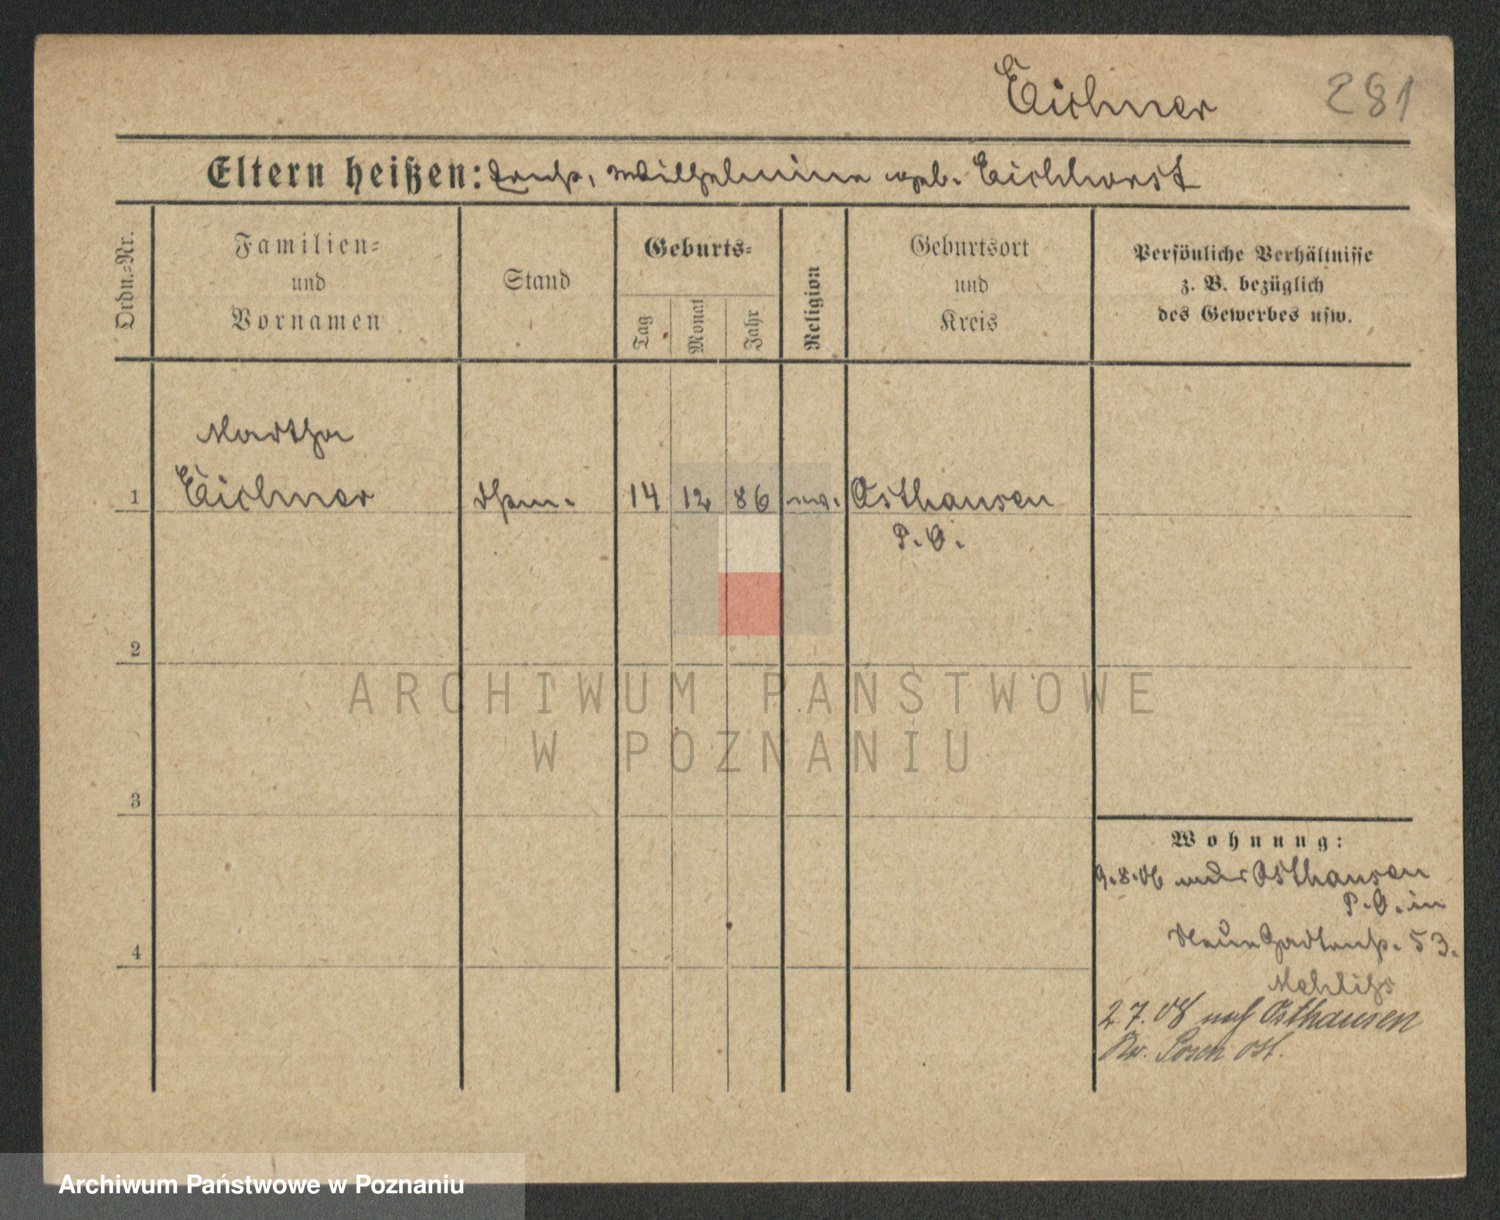 Eichner 281
Eltern heißen: Wilhelmine geb. Eichhorst
Ordn.=Nr.
Familien=
und
Vornamen
Stand
Geburts=
Tag
Monat
Jahr
Religion
Geburtsort
und
Kreis
Persönliche Verhältnisse
z. B. bezüglich
des Gewerbes usw.
Martha
1 Eichner 14 12 86 ev. Osthausen
P. O.
2
ARCHIWUM PAŃSTWOWE
W POZNANIU
3
Wohnung:
9.8.06 Osthausen
P. O. in
Neue Gartenstr. 53.
4
2.7.08 nach Osthausen
Kr. Posen ost.
Archiwum Państwowe w Poznaniu